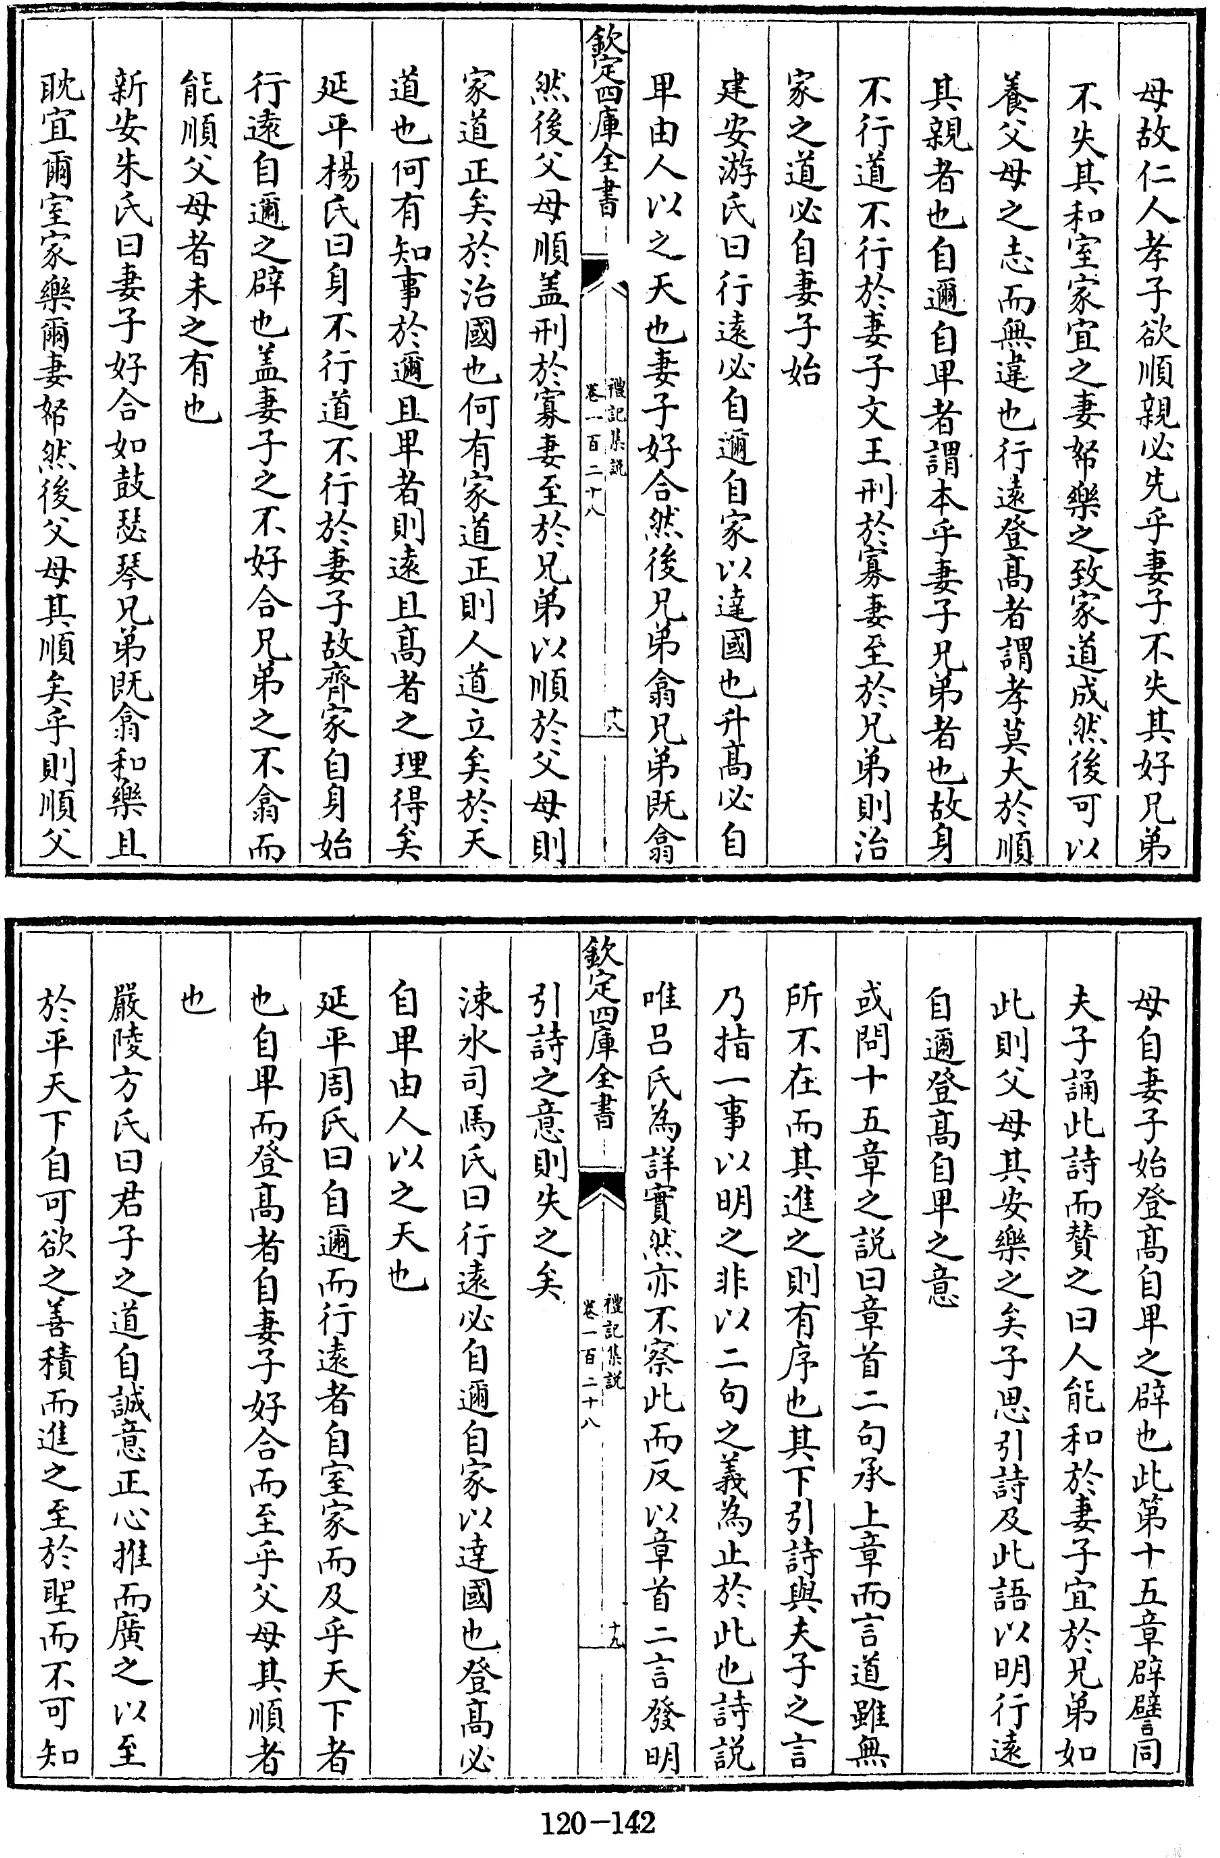 母故仁人孝子欲順親必先乎妻子不失其好兄弟
不失其和室家宜之妻帑樂之致家道成然後可以
養父母之志而無違也行遠登髙者謂孝莫大於順
其親者也自邇自卑者謂本乎妻子兄弟者也故身
不行道不行於妻子文王刑於寡妻至於兄弟則治
家之道必自妻子始
建安游氏曰行遠必自邇自家以達國也升髙必自
卑由人以之天也妻子好合然後兄弟翕兄弟既翕
欽定四庫全書
禮記集説
卷一百二十八
十八
然後父母順盖刑於寡妻至於兄弟以順於父母則
家道正矣於治國也何有家道正則人道立矣於天
道也何有知事於邇且卑者則遠且髙者之理得矣
延平楊氏曰身不行道不行於妻子故齊家自身始
行遠自邇之辟也盖妻子之不好合兄弟之不翕而
能順父母者未之有也
新安朱氏曰妻子好合如鼓瑟琴兄弟既翕和樂且
耽宜爾室家樂爾妻帑然後父母其順矣乎則順父
母自妻子始登髙自卑之辟也此第十五章辟譬同
夫子誦此詩而賛之曰人能和於妻子宜於兄弟如
此則父母其安樂之矣子思引詩及此語以明行遠
自邇登髙自卑之意
或問十五章之説曰章首二句承上章而言道雖無
所不在而其進之則有序也其下引詩與夫子之言
乃指一事以明之非以二句之義為止於此也詩説
唯吕氏為詳實然亦不察此而反以章首二言發明
欽定四庫全書
禮記集説
卷一百二十八
十九
引詩之意則失之矣
涑水司馬氏曰行遠必自邇自家以逹國也登髙必
自卑由人以之天也
延平周氏曰自邇而行遠者自室家而及乎天下者
也自卑而登髙者自妻子好合而至乎父母其順者
也
嚴陵方氏曰君子之道自誠意正心推而廣之以至
於平天下自可欲之善積而進之至於聖而不可知
120-142